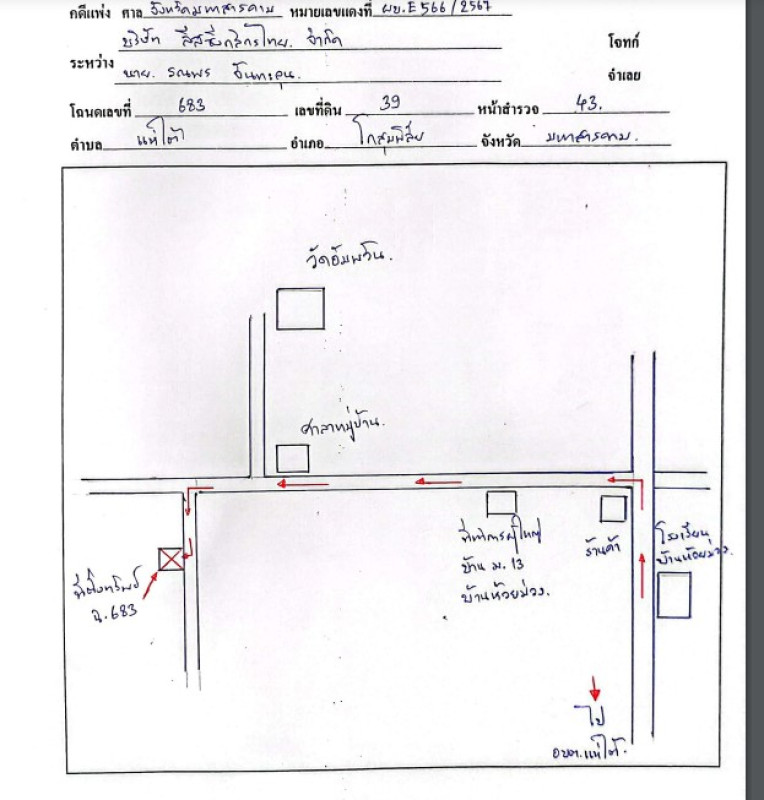 คดีแพ่ง ศาล จังหวัดมหาสารคาม หมายเลขแดงที่ ผบ.E 566/2567
บริษัท ลีสซิ่งกสิกรไทย จำกัด โจทก์
ระหว่าง
นาย จันทะคุน จำเลย
โฉนดเลขที่ 683 เลขที่ดิน 39 หน้าสำรวจ 43.
ตำบล แห่ใต้ อำเภอ โกสุมพิสัย จังหวัด มหาสารคาม.
วัดอัมพวัน.
ศาลาหมู่บ้าน.
ที่ทำการผู้ใหญ่
บ้าน ม.13
บ้านห้วยม่วง.
ร้านค้า
โรงเรียน
บ้านห้วยม่วง.
ที่ตั้งทรัพย์
ฉ.683
ไป
อบต.แห่ใต้.